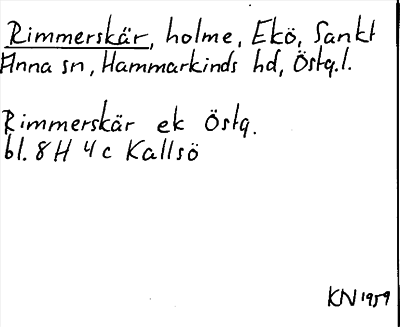 Rimmerskär, holme, Ekö, Sankt
Anna sn, Hammarkinds hd, Östg.l.
Rimmerskär ek Östg.
bl. 8H 4c Kallsö
KN 1959